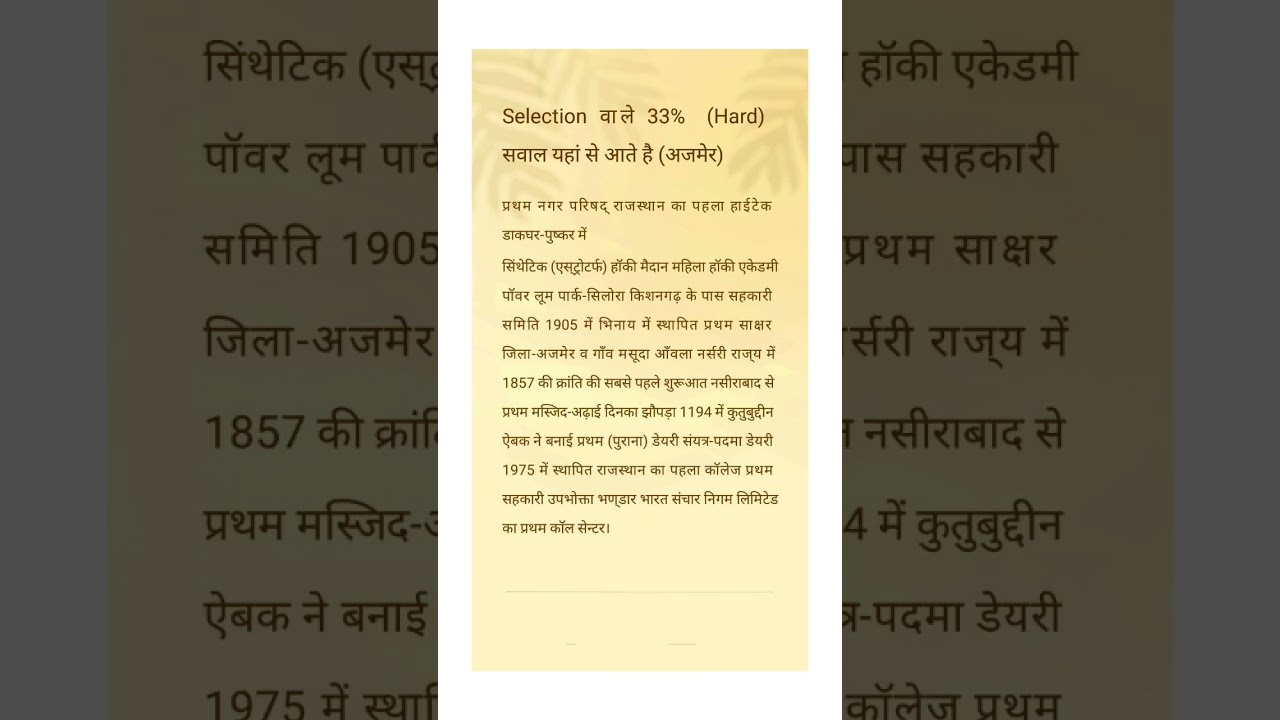 Selection वाले 33% (Hard)
सवाल यहां से आते है (अजमेर)
प्रथम नगर परिषद् राजस्थान का पहला हाईटेक
डाकघर-पुष्कर में
सिंथेटिक (एस्ट्रोटर्फ) हॉकी मैदान महिला हॉकी एकेडमी
पॉवर लूम पार्क-सिलोरा किशनगढ़ के पास सहकारी
समिति 1905 में भिनाय में स्थापित प्रथम साक्षर
जिला-अजमेर व गाँव मसूदा आँवला नर्सरी राज्य में
1857 की क्रांति की सबसे पहले शुरूआत नसीराबाद से
प्रथम मस्जिद-अढ़ाई दिनका झौपड़ा 1194 में कुतुबुद्दीन
ऐबक ने बनाई प्रथम (पुराना) डेयरी संयत्र-पदमा डेयरी
1975 में स्थापित राजस्थान का पहला कॉलेज प्रथम
सहकारी उपभोक्ता भण्डार भारत संचार निगम लिमिटेड
का प्रथम कॉल सेन्टर।